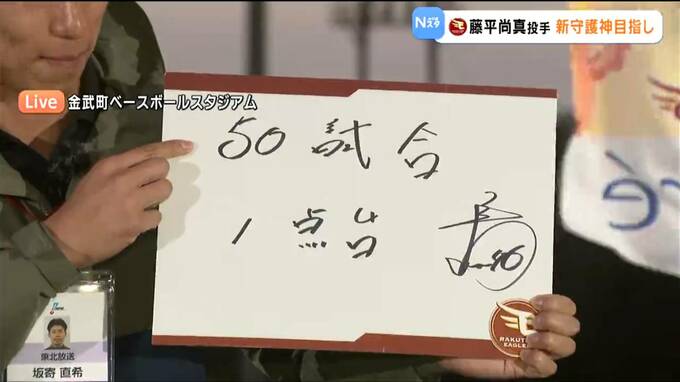 Nスタ
藤平尚真投手 新守護神目指し
Live 金武町ベースボールスタジアム
50 試合
1 点台
46
RAKUTEN
EAGLES
東北放送
坂寄 直希